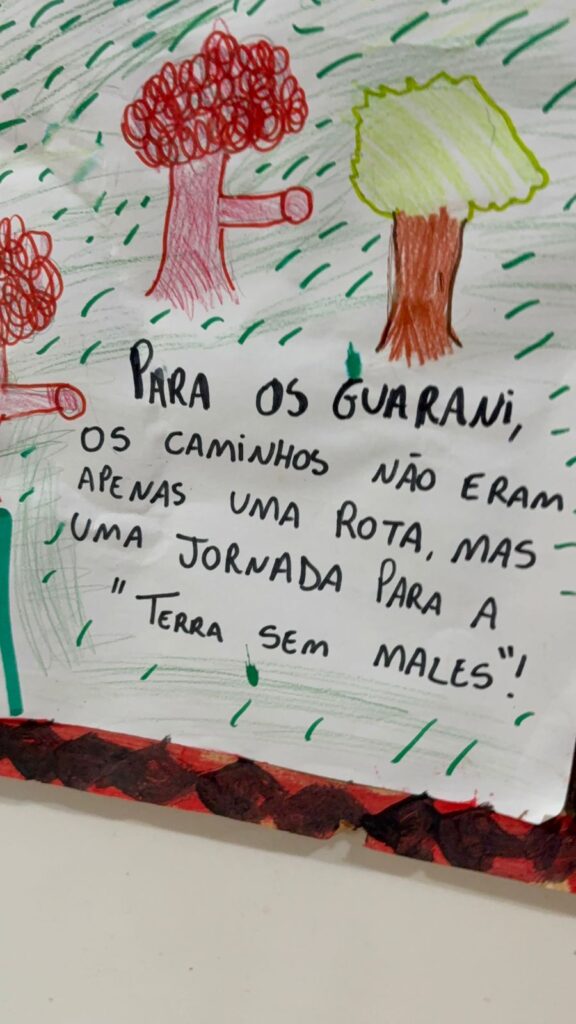 PARA OS GUARANI,
OS CAMINHOS NÃO ERAM
APENAS UMA ROTA, MAS
UMA JORNADA PARA A
"TERRA SEM MALES"!